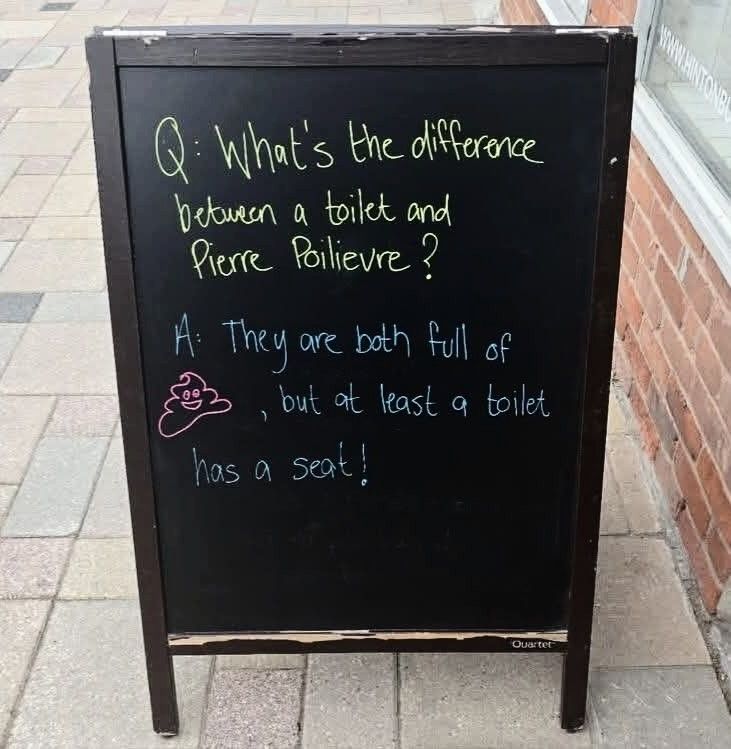 Q: What's the difference
between a toilet and
Pierre Poilievre?
A: They are both full of
💩, but at least a toilet
has a seat!
Quartet